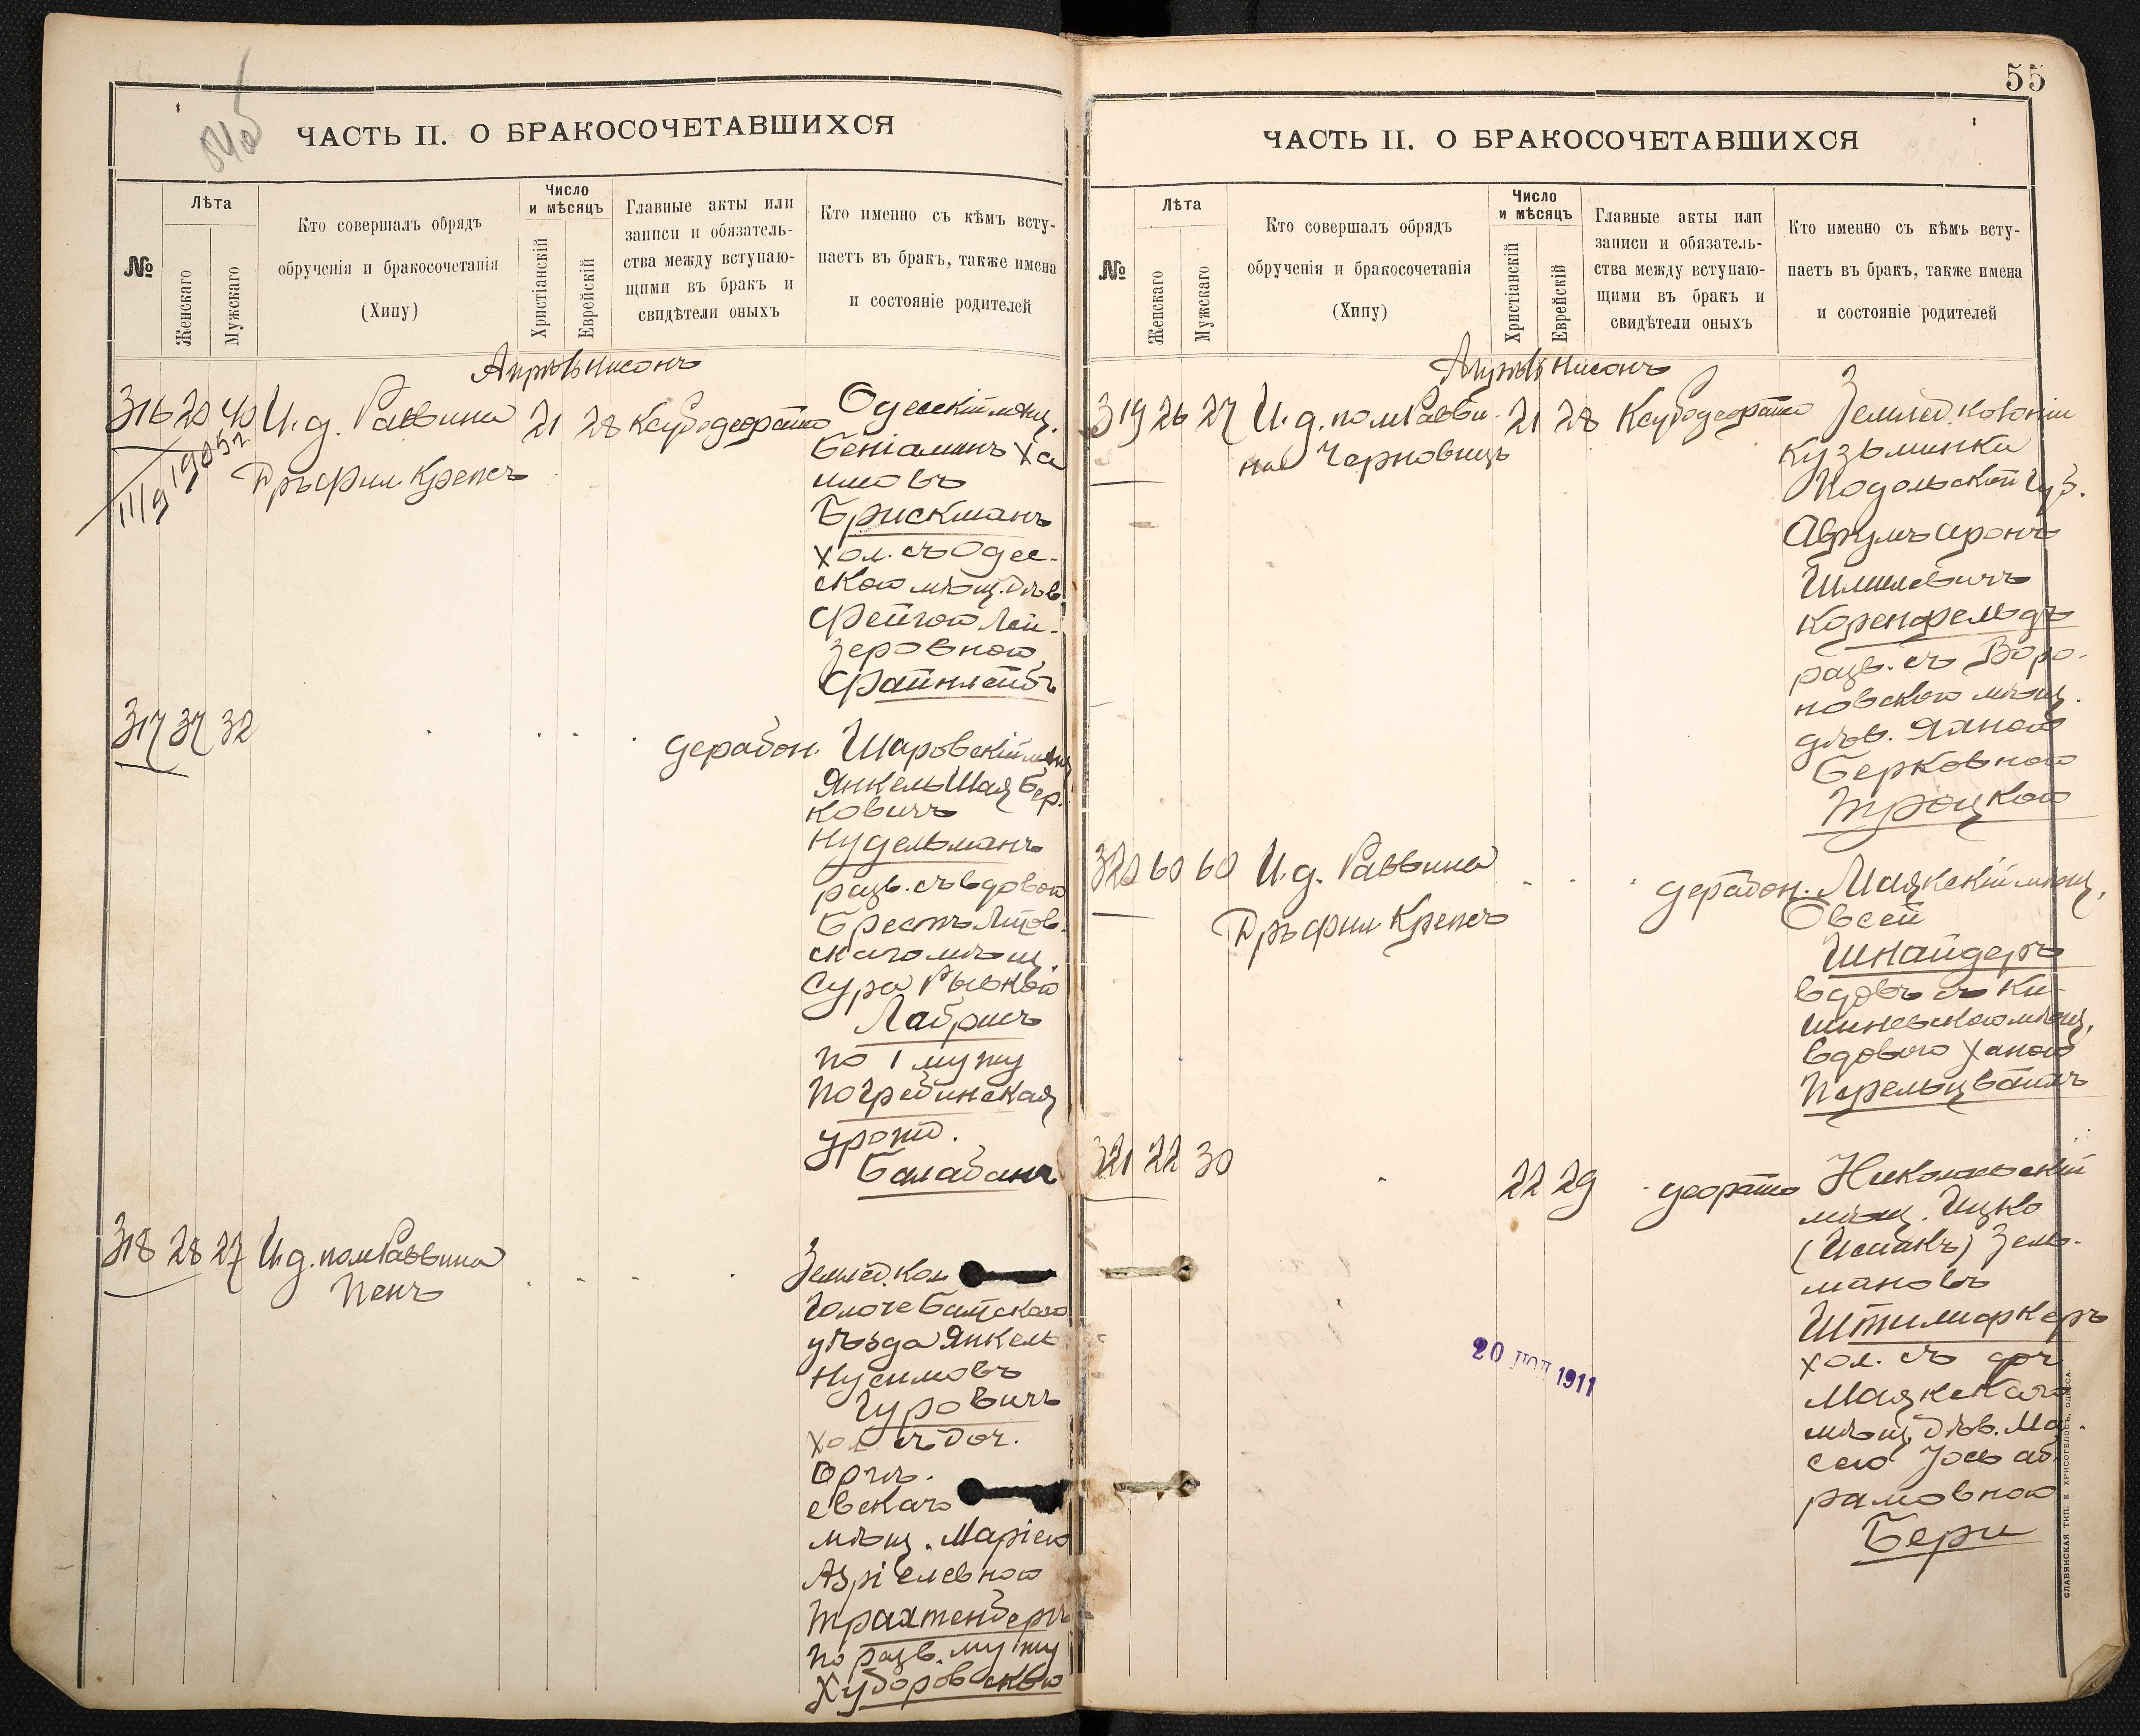 ЧАСТЬ II. О БРАКОСОЧЕТАВШИХСЯ
№
Лѣта
Женскаго
Мужскаго
Кто совершалъ обрядъ
обрученія и бракосочетанія
(Хипу)
Число
и мѣсяцъ
Христіанскій
Еврейскій
Главные акты или
записи и обязатель-
ства между вступаю-
щими въ бракъ и
свидѣтели оныхъ
Кто именно съ кѣмъ всту-
паетъ въ бракъ, также имена
и состояніе родителей
Апрѣль Нисонъ
316 20 40 И. д. Раввина 21 28
Дръ Фил. Крепсъ
Одесскій мѣщ.
Беніаминъ Ха
имовъ
Брискманъ
хол. съ Одес-
скою мѣщ. дѣв.
Фейгою Лей-
зеровною
Файнлейбъ
317 37 32
Шаровскій мѣщ
Янкель Шая Бер.
ковичъ
Нудельманъ
разв. съ вдовою
Брестъ Литов.
скаго мѣщ.
Сура Рывкою
по 1 мужу
Погребинская
урожд.
Балабанъ
318 28 27 И. д. пом Раввина
Пенъ
Землед. Кол
уѣзда Янкель
Нусимовъ
Гуровичъ
хол. съ доч.
евскаго
мѣщ. Маріею
Азріелевною
Трахтенбергъ
по разв. мужу
55
ЧАСТЬ II. О БРАКОСОЧЕТАВШИХСЯ
№
Лѣта
Женскаго
Мужскаго
Кто совершалъ обрядъ
обрученія и бракосочетанія
(Хипу)
Число
и мѣсяцъ
Христіанскій
Еврейскій
Главные акты или
записи и обязатель-
ства между вступаю-
щими въ бракъ и
свидѣтели оныхъ
Кто именно съ кѣмъ всту-
паетъ въ бракъ, также имена
и состояніе родителей
Апрѣль Нисонъ
319 26 27 И. д. пом Равви- 21 28
на Черновицъ
Землед. колоніи
Кузьминки
Подольской губ.
Аврумъ Аронъ
Шмилевичъ
Коренфельдъ
разв. съ Воро-
новскою мѣщ.
дѣв.
Берковною
Троцкою
320 60 60 И. д. Раввина
Дръ Фил Крепсъ
Маякскій мѣщ.
Овсей
Шнайдеръ
вдовъ съ Ки-
шиневскою мѣщ.
вдовою Ханою
Перельцвайгъ
321 22 30 22 29
Николаевскій
мѣщ. Ицко
(Исаакъ) Зель-
мановъ
Штилмаркеръ
хол. съ доч
Маякскаго
мѣщ. дѣв. Ма-
сею Іось Аб
рамовною
Бери
20 1911
СЛАВЯНСКАЯ ТИП. Е. ХРИСОГЕЛОСЪ, ОДЕССА.